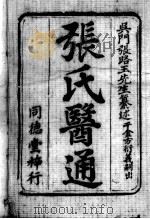 吳門張路玉先生纂述
千金方衍義嗣出
張氏醫通
同德堂梓行